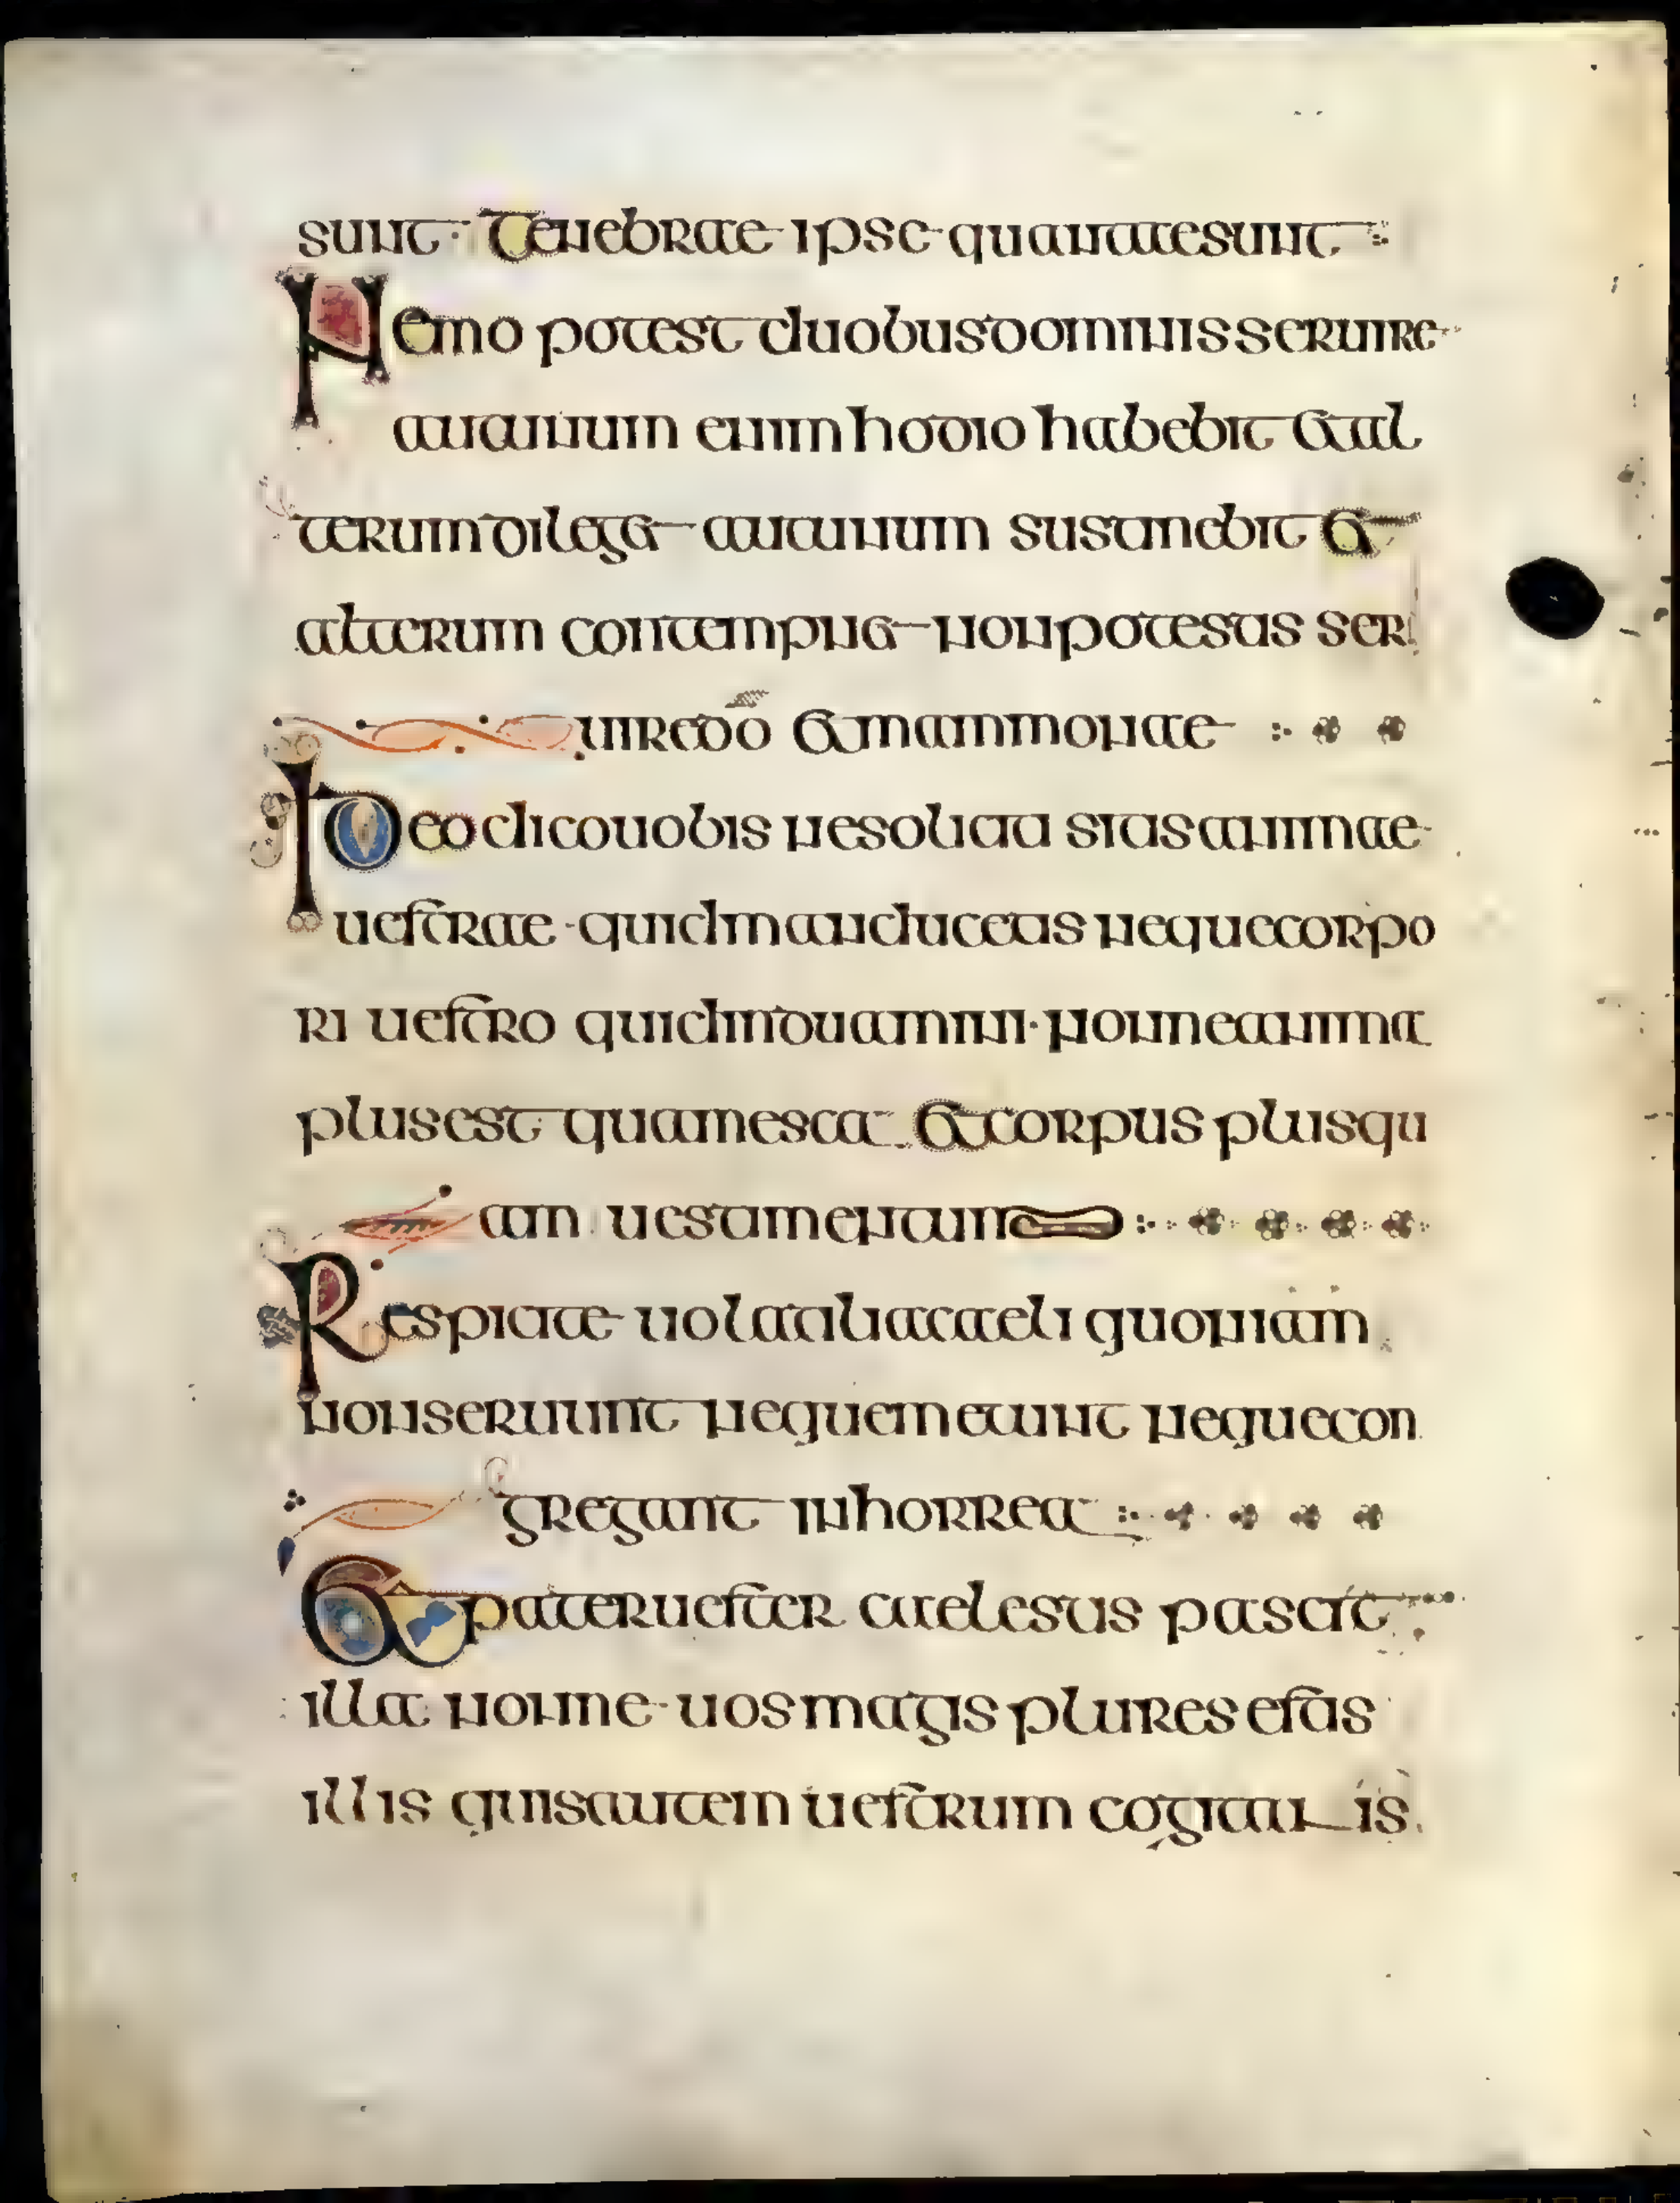 sunt · Tenebrae ipse quantae sunt
Nemo potest duobus dominis seruire
aut unum enim hodio habebit et al
terum dileget aut unum sustinebit et
alterum contempnet non potestis ser
uire dō et mammonae
Ideo dico uobis ne soliciti sitis animae
uestrae · quid manducetis neque corpo
ri uestro quid induamini · nonne anima
plus est quam esca et corpus plus qu
am uestimentum
Respicite uolatilia caeli quoniam
non seruunt neque metunt neque con
gregant in horrea
Et pater uester caelestis pascit
illa nonne uos magis plures estis
illis quis autem uestrum cogitans